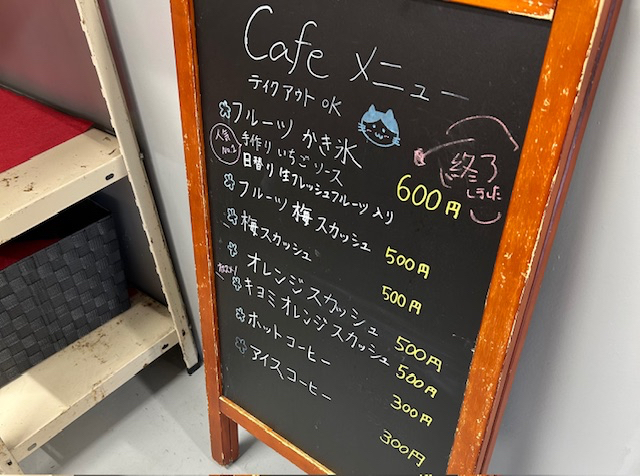 Cafe メニュー
テイクアウト OK
フルーツ かき氷 600円
人気 No.1
手作り いちごソース
日替り 生フレッシュフルーツ入り
終了しました
フルーツ 梅スカッシュ 500円
梅スカッシュ 500円
オレンジスカッシュ 500円
キヨミオレンジスカッシュ 500円
ホットコーヒー 300円
アイスコーヒー 300円